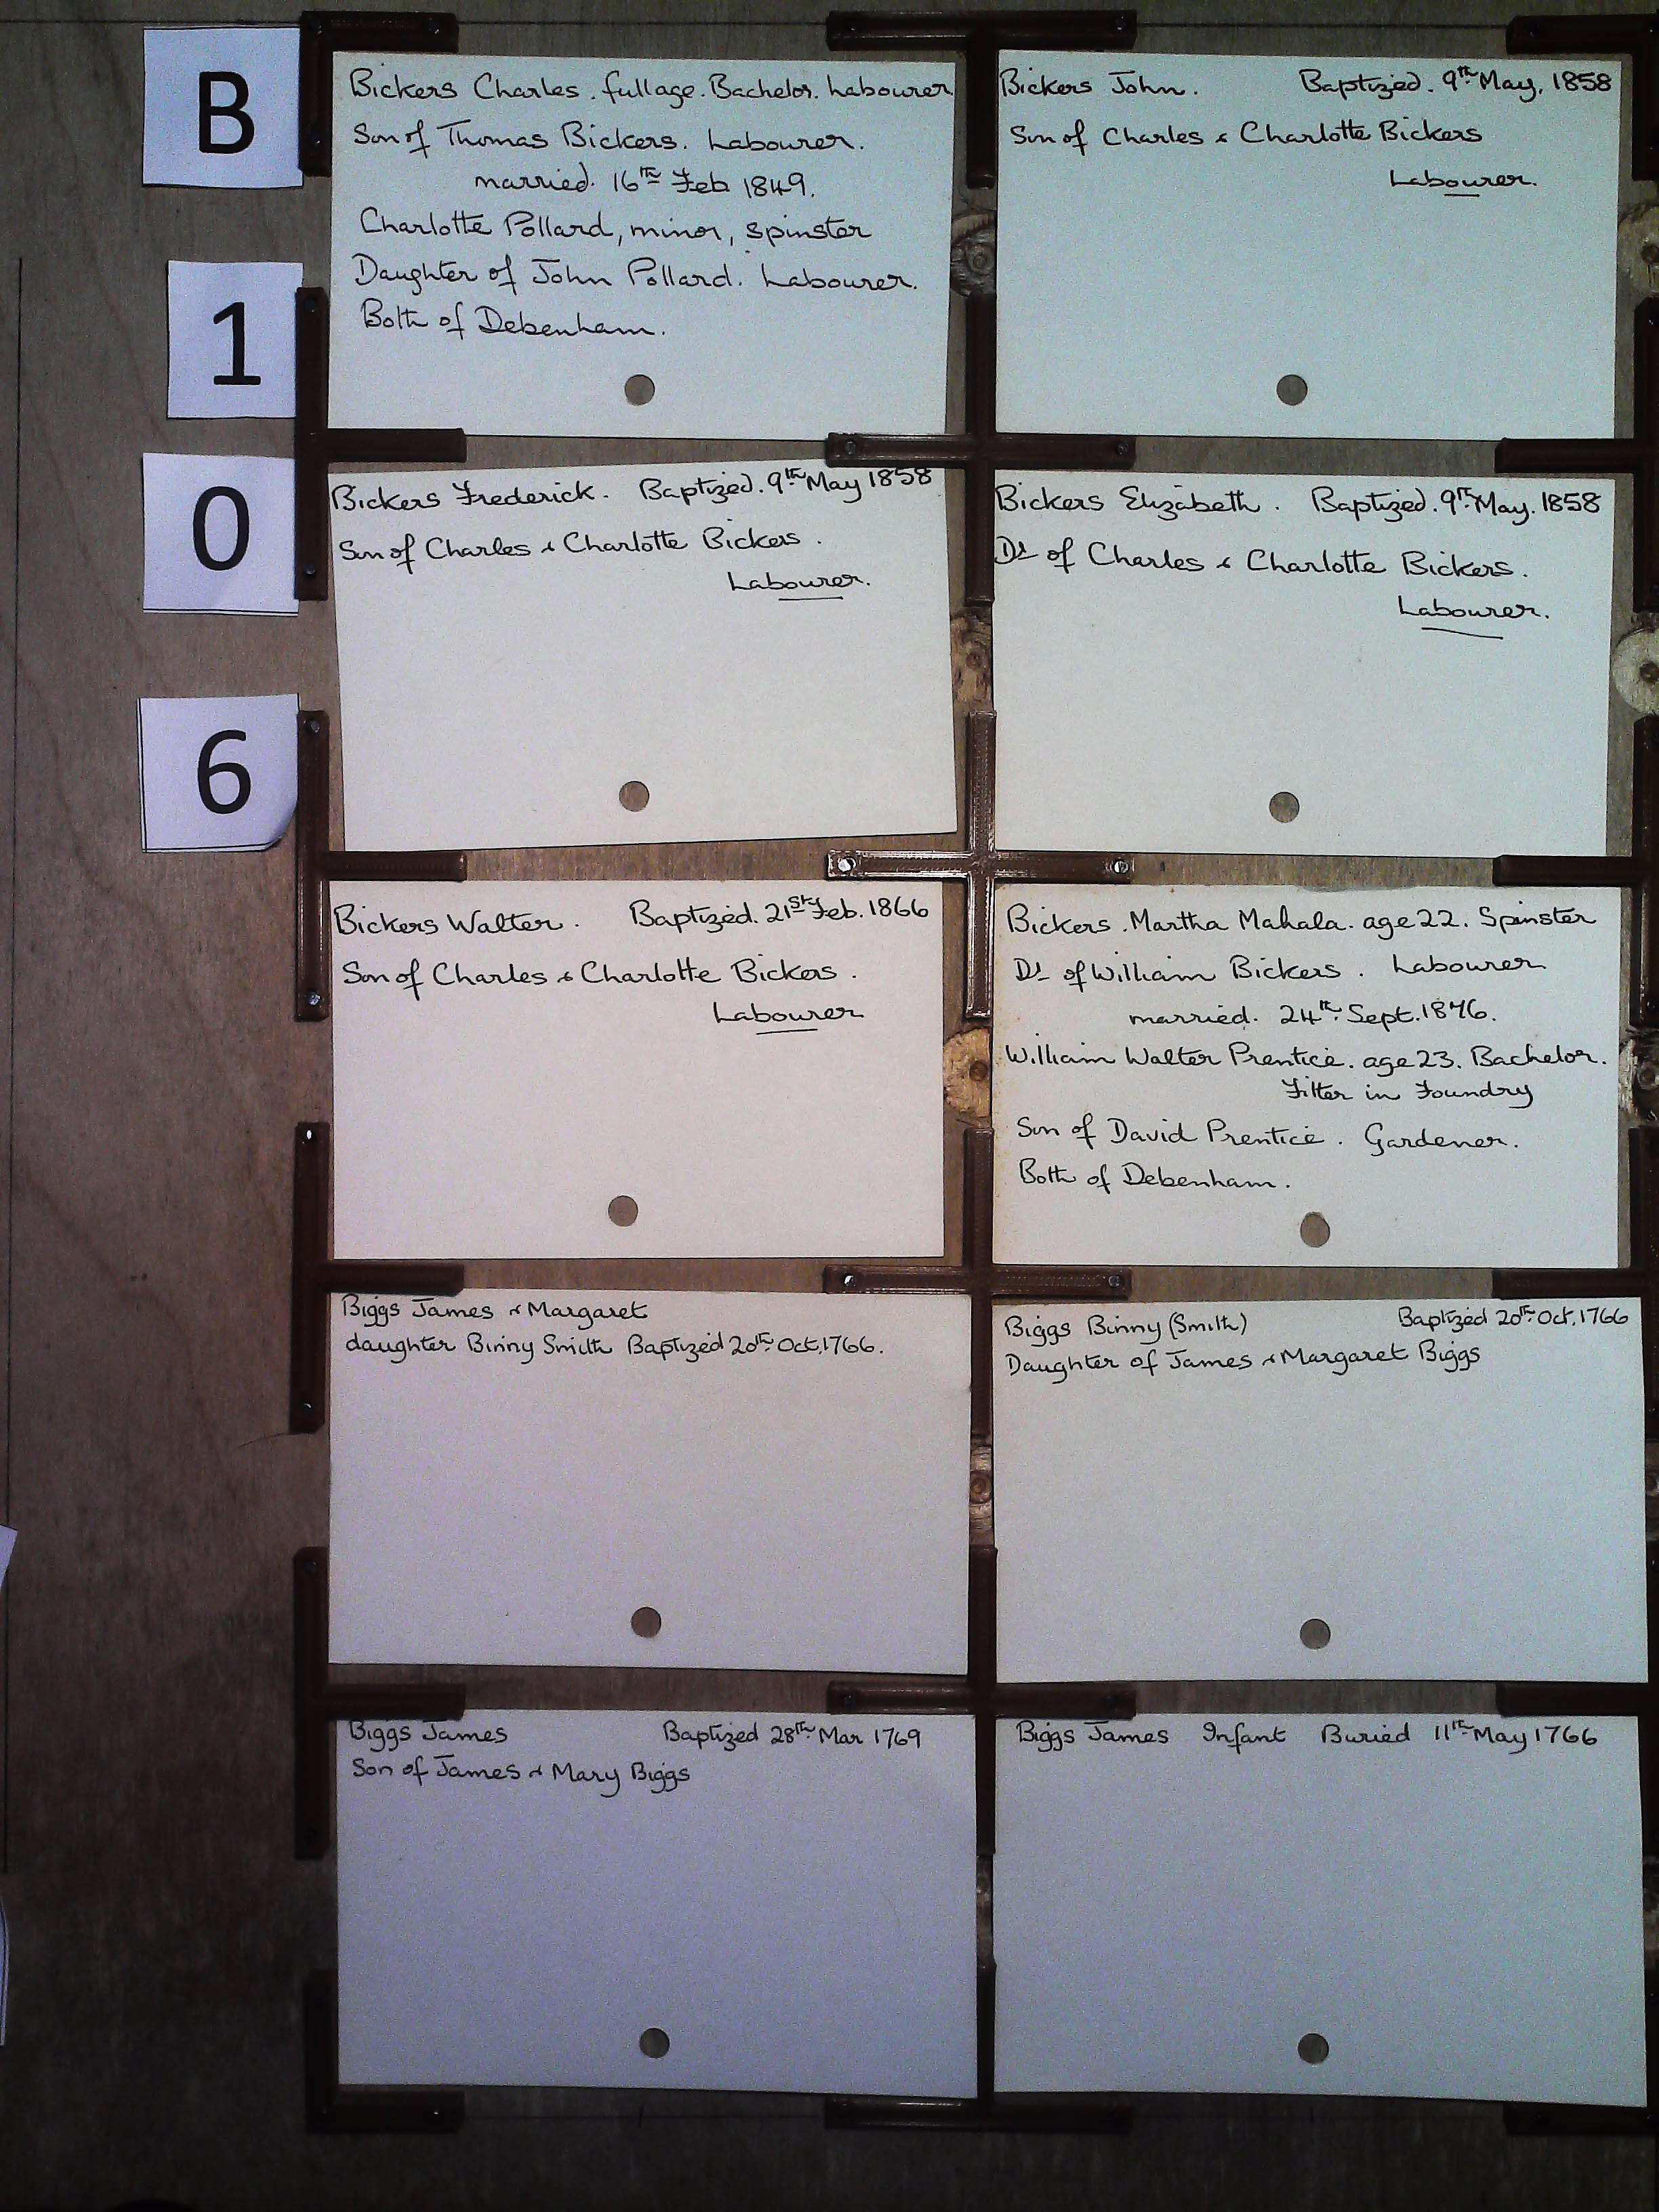 B
1
0
6
Bickers Charles. full age. Bachelor. Labourer
Son of Thomas Bickers. Labourer.
married. 16th Feb 1849.
Charlotte Pollard, minor, spinster
Daughter of John Pollard. Labourer.
Both of Debenham.
Bickers John. Baptized. 9th May. 1858
Son of Charles & Charlotte Bickers
Labourer.
Bickers Frederick. Baptized. 9th May 1858
Son of Charles & Charlotte Bickers.
Labourer.
Bickers Elizabeth. Baptized. 9th May. 1858
Dr of Charles & Charlotte Bickers.
Labourer.
Bickers Walter. Baptized. 21st Feb. 1866
Son of Charles & Charlotte Bickers.
Labourer
Bickers. Martha Mahala. age 22. Spinster
Dr of William Bickers. Labourer
married. 24th Sept. 1876.
William Walter Prentice. age 23. Bachelor.
Fitter in Foundry
Son of David Prentice. Gardener.
Both of Debenham.
Biggs James & Margaret
daughter Binny Smith Baptized 20th Oct. 1766.
Biggs Binny (Smith) Baptized 20th Oct. 1766
Daughter of James & Margaret Biggs
Biggs James Baptized 28th Mar 1769
Son of James & Mary Biggs
Biggs James Infant Buried 11th May 1766